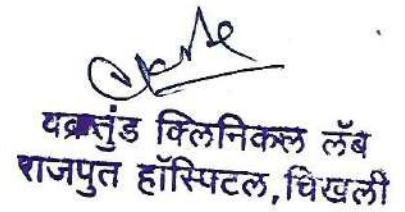 वक्रतुंड क्लिनिकल लॅब
राजपुत हॉस्पिटल, चिखली